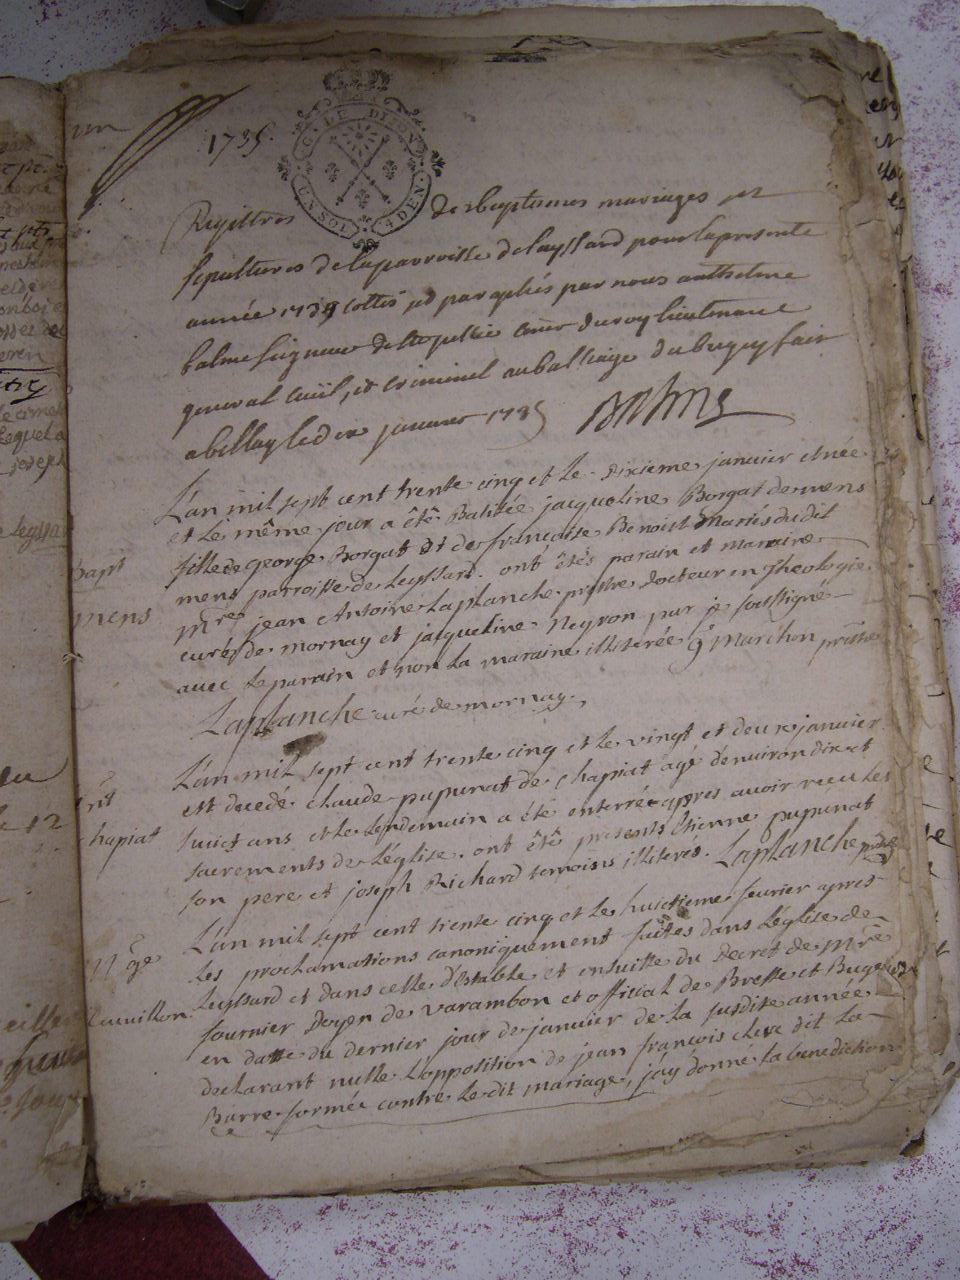 1735.
G. LE DIJON
UN SOL 4 DEN.
Registres des baptesmes mariages et
sepultures de la parroisse de Leyssard pour la presente
année 1735 cottés et paraphés par nous anthelme
balme seigneur de
general civil, et criminel au balliage du bugey fait
a belley le dix janvier 1735 Balme
L'an mil sept cent trente cinq et le dixieme janvier et née
et le même jour a êtê Batisée jacqueline Borgat de mens
fille de george Borgat et de françoise Benoist mariés dudit
mens parroisse de Leyssard. ont êtés parain et maraine
Mre jean Antoine Laplanche prestre docteur en Theologie
curé de mornay et jacqueline Neyron par je soussigné
avec le parain et non la maraine illiterée Marchon prestre
Laplanche curé de mornay.
Bapt
mens
L'an mil sept cent trente cinq et le vingt et deux janvier
est decedé claude pupunat de Chapiat agé d'environ dix et
huict ans et le lendemain a été enterré apres avoir receu les
sacrements de l'église. ont êtê presents Etienne pupunat
son pere et joseph Richard temoins illiteres. Laplanche
Ent
chapiat
L'an mil sept cent trente cinq et le huictieme fevrier apres
les proclamations canoniquement faites dans l'église de
Leyssard et dans celle d'estable et ensuitte du decret de Mre
fournier Doyen de Varambon et official de Bresse et Bugey
en datte du dernier jour de janvier de la susdite année
declarant nulle l'opposition de jean françois clerc dit la
Barre formée contre le dit mariage, j'ay donné la benediction
Mge